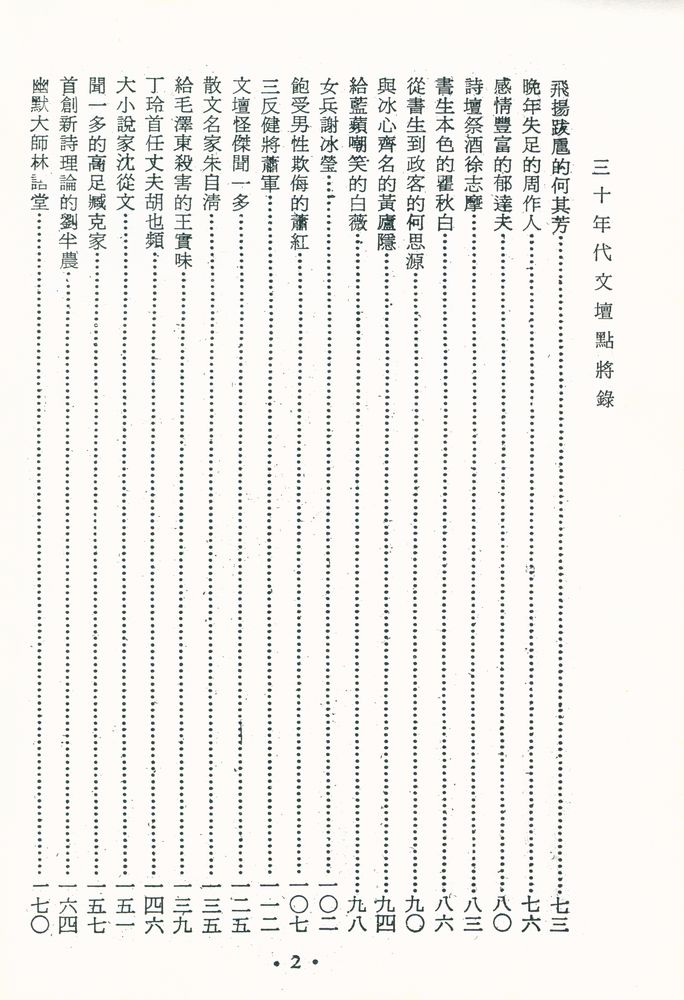 三十年代文壇點將錄
飛揚跋扈的何其芳…………七三
晚年失足的周作人…………七六
感情豐富的郁達夫…………八〇
詩壇祭酒徐志摩…………八三
書生本色的瞿秋白…………八六
從書生到政客的何思源…………九〇
與冰心齊名的黃廬隱…………九四
給藍蘋嘲笑的白薇…………九八
女兵謝冰瑩…………一〇二
飽受男性欺侮的蕭紅…………一〇七
三反健將蕭軍…………一一二
文壇怪傑聞一多…………一二五
散文名家朱自清…………一三五
給毛澤東殺害的王實味…………一三九
丁玲首任丈夫胡也頻…………一四六
大小說家沈從文…………一五一
聞一多的高足臧克家…………一五七
首創新詩理論的劉半農…………一六四
幽默大師林語堂…………一七〇
• 2 •